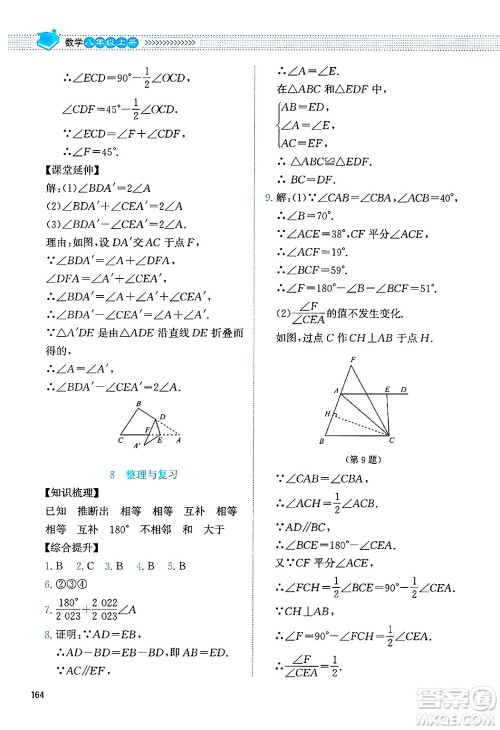 数学八年级上册
∴∠ECD=90°-1/2∠ACE,
∠CDF=45°-1/2∠ACE.
∴∠F=45°.
【课堂延伸】
解:(1)∠BDA′=2∠A
(2)∠BDA′+∠CEA′=2∠A
(3)∠BDA′-∠CEA′=2∠A.
理由:如图,设DA′交AC于点F,
∵∠BDA′=∠A+∠DFA,
∠DFA=∠A′+∠CEA′,
∴∠BDA′=∠A+∠A′+∠CEA′.
∴∠BDA′-∠CEA′=∠A+∠A′.
∵△A′DE是△ADE沿直线DE折叠而
得的,
∴∠A=∠A′.
∴∠BDA′-∠CEA′=2∠A.
B
D
F
C
E
A
A′
8 整理与复习
【知识梳理】
已知 推断出 相等 相等 互补 相等
相等 互补 180° 不相邻 和 大于
【综合提升】
1. B 2. C 3. B 4. B 5. B
6. ②③④
7. 180°/2 023+2 022/2 023∠A
8. 证明:∵AD=EB,
∴AD-BD=EB-BD,即AB=ED.
∵AC∥EF,
∴∠A=∠E.
在△ABC和△EDF中,
AB=ED,
∠A=∠E,
AC=EF,
∴△ABC≌△EDF.
∴BC=DF.
9. 解:(1)∵∠CAB=∠CBA,∠ACB=40°,
∴∠B=70°.
∵∠ACE=38°,CF平分∠ACE,
∴∠ACF=19°.
∴∠BCF=59°.
∴∠F=180°-∠B-∠BCF=51°.
(2)∠F/∠CEA的值不发生变化.
如图,过点C作CH⊥AB于点H.
F
A
E
D
H
B
C
(第9题)
∵∠CAB=∠CBA,
∴∠ACH=1/2∠ACB.
∵AD∥BC,
∴∠CEA=180°-∠BCE.
又∵CF平分∠ACE,
∴∠FCH=1/2∠ACE+1/2∠ACB=1/2∠BCE.
∴∠F=90°-∠FCH=90°-1/2∠BCE.
∴∠F/∠CEA=1/2.
164